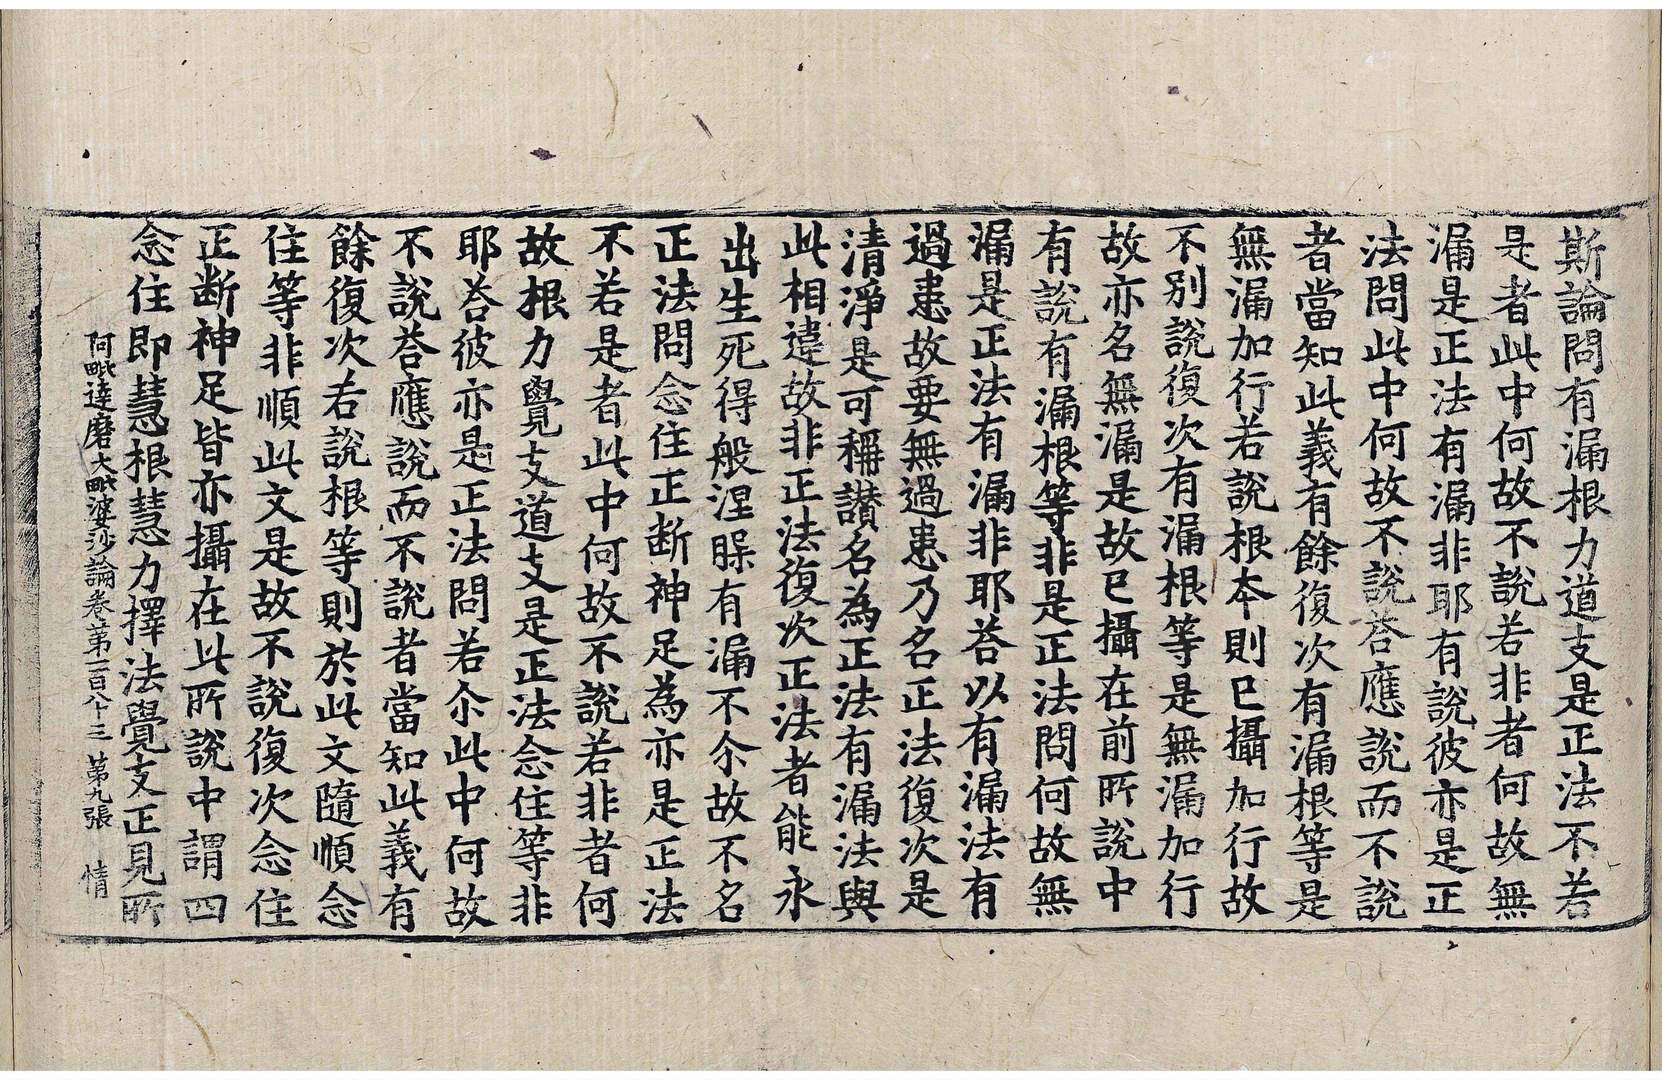 斯論問有漏根力道支是正法不若
是者此中何故不說若非者何故無
漏是正法有漏非耶有說彼亦是正
法問此中何故不說荅應說而不說
者當知此義有餘復次有漏根等是
無漏加行若說根本則已攝加行故
不別說復次有漏根等是無漏加行
故亦名無漏是故已攝在前所說中
有說有漏根等非是正法問何故無
漏是正法有漏非耶荅以有漏法有
過患故要無過患乃名正法復次是
清淨是可稱讚名為正法有漏法與
此相違故非正法復次正法者能永
出生死得般涅槃有漏不尒故不名
正法問念住正断神足為亦是正法
不若是者此中何故不說若非者何
故根力覺支道支是正法念住等非
耶荅彼亦是正法問若尒此中何故
不說荅應說而不說者當知此義有
餘復次若說根等則於此文隨順念
住等非順此文是故不說復次念住
正断神足皆亦攝在此所說中謂四
念住即慧根慧力擇法覺支正見所
阿毗達磨大毗婆沙論卷第一百八十三 第九張 情